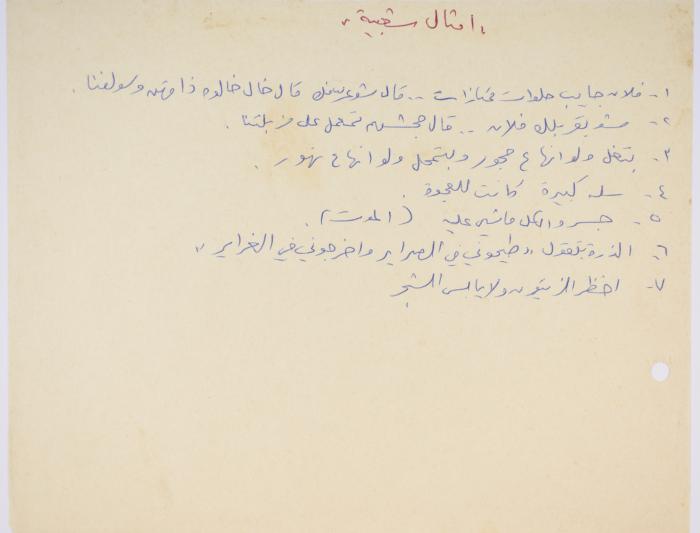 "امثال شعبية"
١- فلان جايب حلوات ممتازات .. قال شو عرفك قال خال خالوه ذاقهن وسولفنا.
٢- شو بقربلك فلان .. قال جحشهم تمعمل على مزبلتنا.
٣- بتضل ولو انها ع حجور وبتمحل ولو انها ع نهور.
٤- سله كبيرة كانت للعجوة.
٥- جسر والكل ماشي عليه (الموت).
٦- الذرة بتقول "طيحوني في الصراير واخرجوني في الغراير"
٧- اخظر الزيتون ولا يابس الشجر